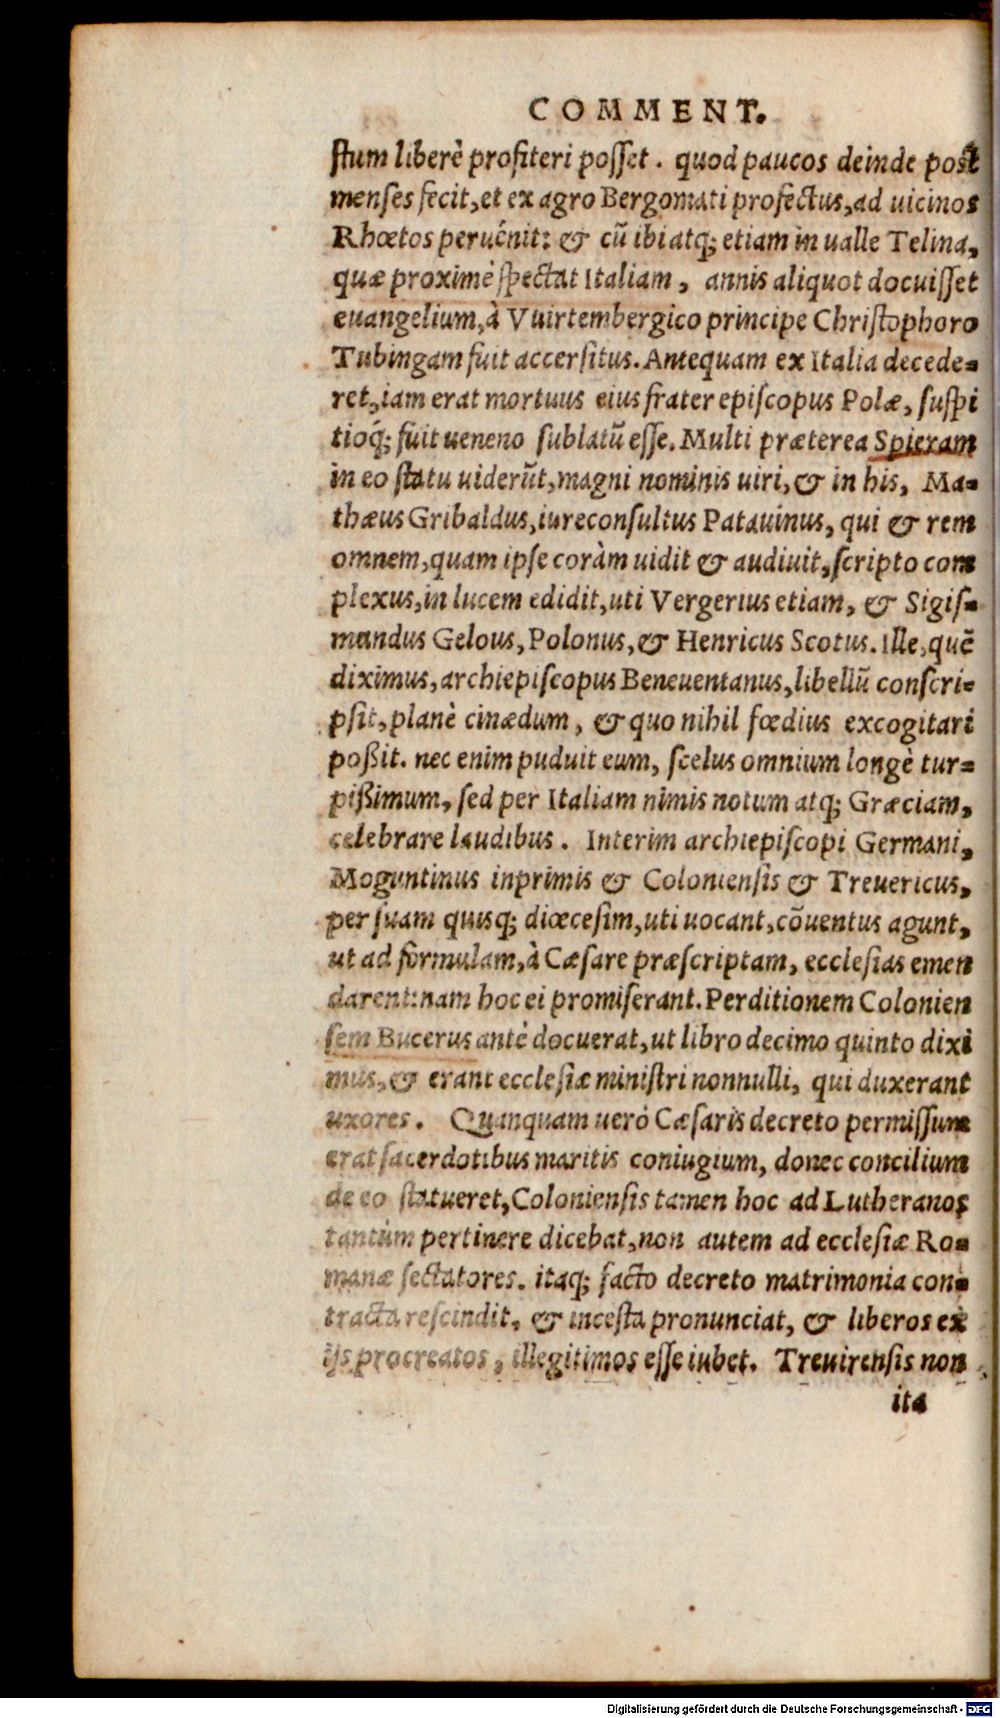 COMMENT.
stum liberè profiteri posset. quod paucos deinde post
menses fecit, et ex agro Bergomati profectus, ad uicinos
Rhœtos peruênit: & cũ ibi atq; etiam in ualle Telina,
quæ proximè spectat Italiam, annis aliquot docuisset
euangelium, à Vuirtembergico principe Christophoro
Tubingam fuit accersitus. Antequam ex Italia decede-
ret, iam erat mortuus eius frater episcopus Polæ, suspi
tioq́; fuit ueneno sublatũ esse. Multi præterea Spieram
in eo statu uiderũt, magni nominis uiri, & in his, Ma-
thæus Gribaldus, iureconsultus Patauinus, qui & rem
omnem, quam ipse coràm uidit & audiuit, scripto com
plexus, in lucem edidit, uti Vergerius etiam, & Sigis-
mundus Gelous, Polonus, & Henricus Scotus. Ille, quẽ
diximus, archiepiscopus Beneuentanus, libellũ conscri-
psit, planè cinædum, & quo nihil fœdius excogitari
poßit. nec enim puduit eum, scelus omnium longè tur-
pißimum, sed per Italiam nimis notum atq; Græciam,
celebrare laudibus. Interim archiepiscopi Germani,
Moguntinus inprimis & Coloniensis & Treuericus,
per suam quisq; diœcesim, uti uocant, cõuentus agunt,
ut ad formulam, à Cæsare præscriptam, ecclesias emen
darent: nam hoc ei promiserant. Perditionem Colonien
sem Bucerus antè docuerat, ut libro decimo quinto dixi
mus, & erant ecclesiæ ministri nonnulli, qui duxerant
uxores. Quanquam uerò Cæsaris decreto permissum
erat sacerdotibus maritis coniugium, donec concilium
de eo statueret, Coloniensis tamen hoc ad Lutheranos
tantùm pertinere dicebat, non autem ad ecclesiæ Ro-
manæ sectatores. itaq; facto decreto matrimonia con-
tracta rescindit, & incesta pronunciat, & liberos ex
ijs procreatos, illegitimos esse iubet. Treuirensis non
ita
Digitalisierung gefördert durch die Deutsche Forschungsgemeinschaft - DFG